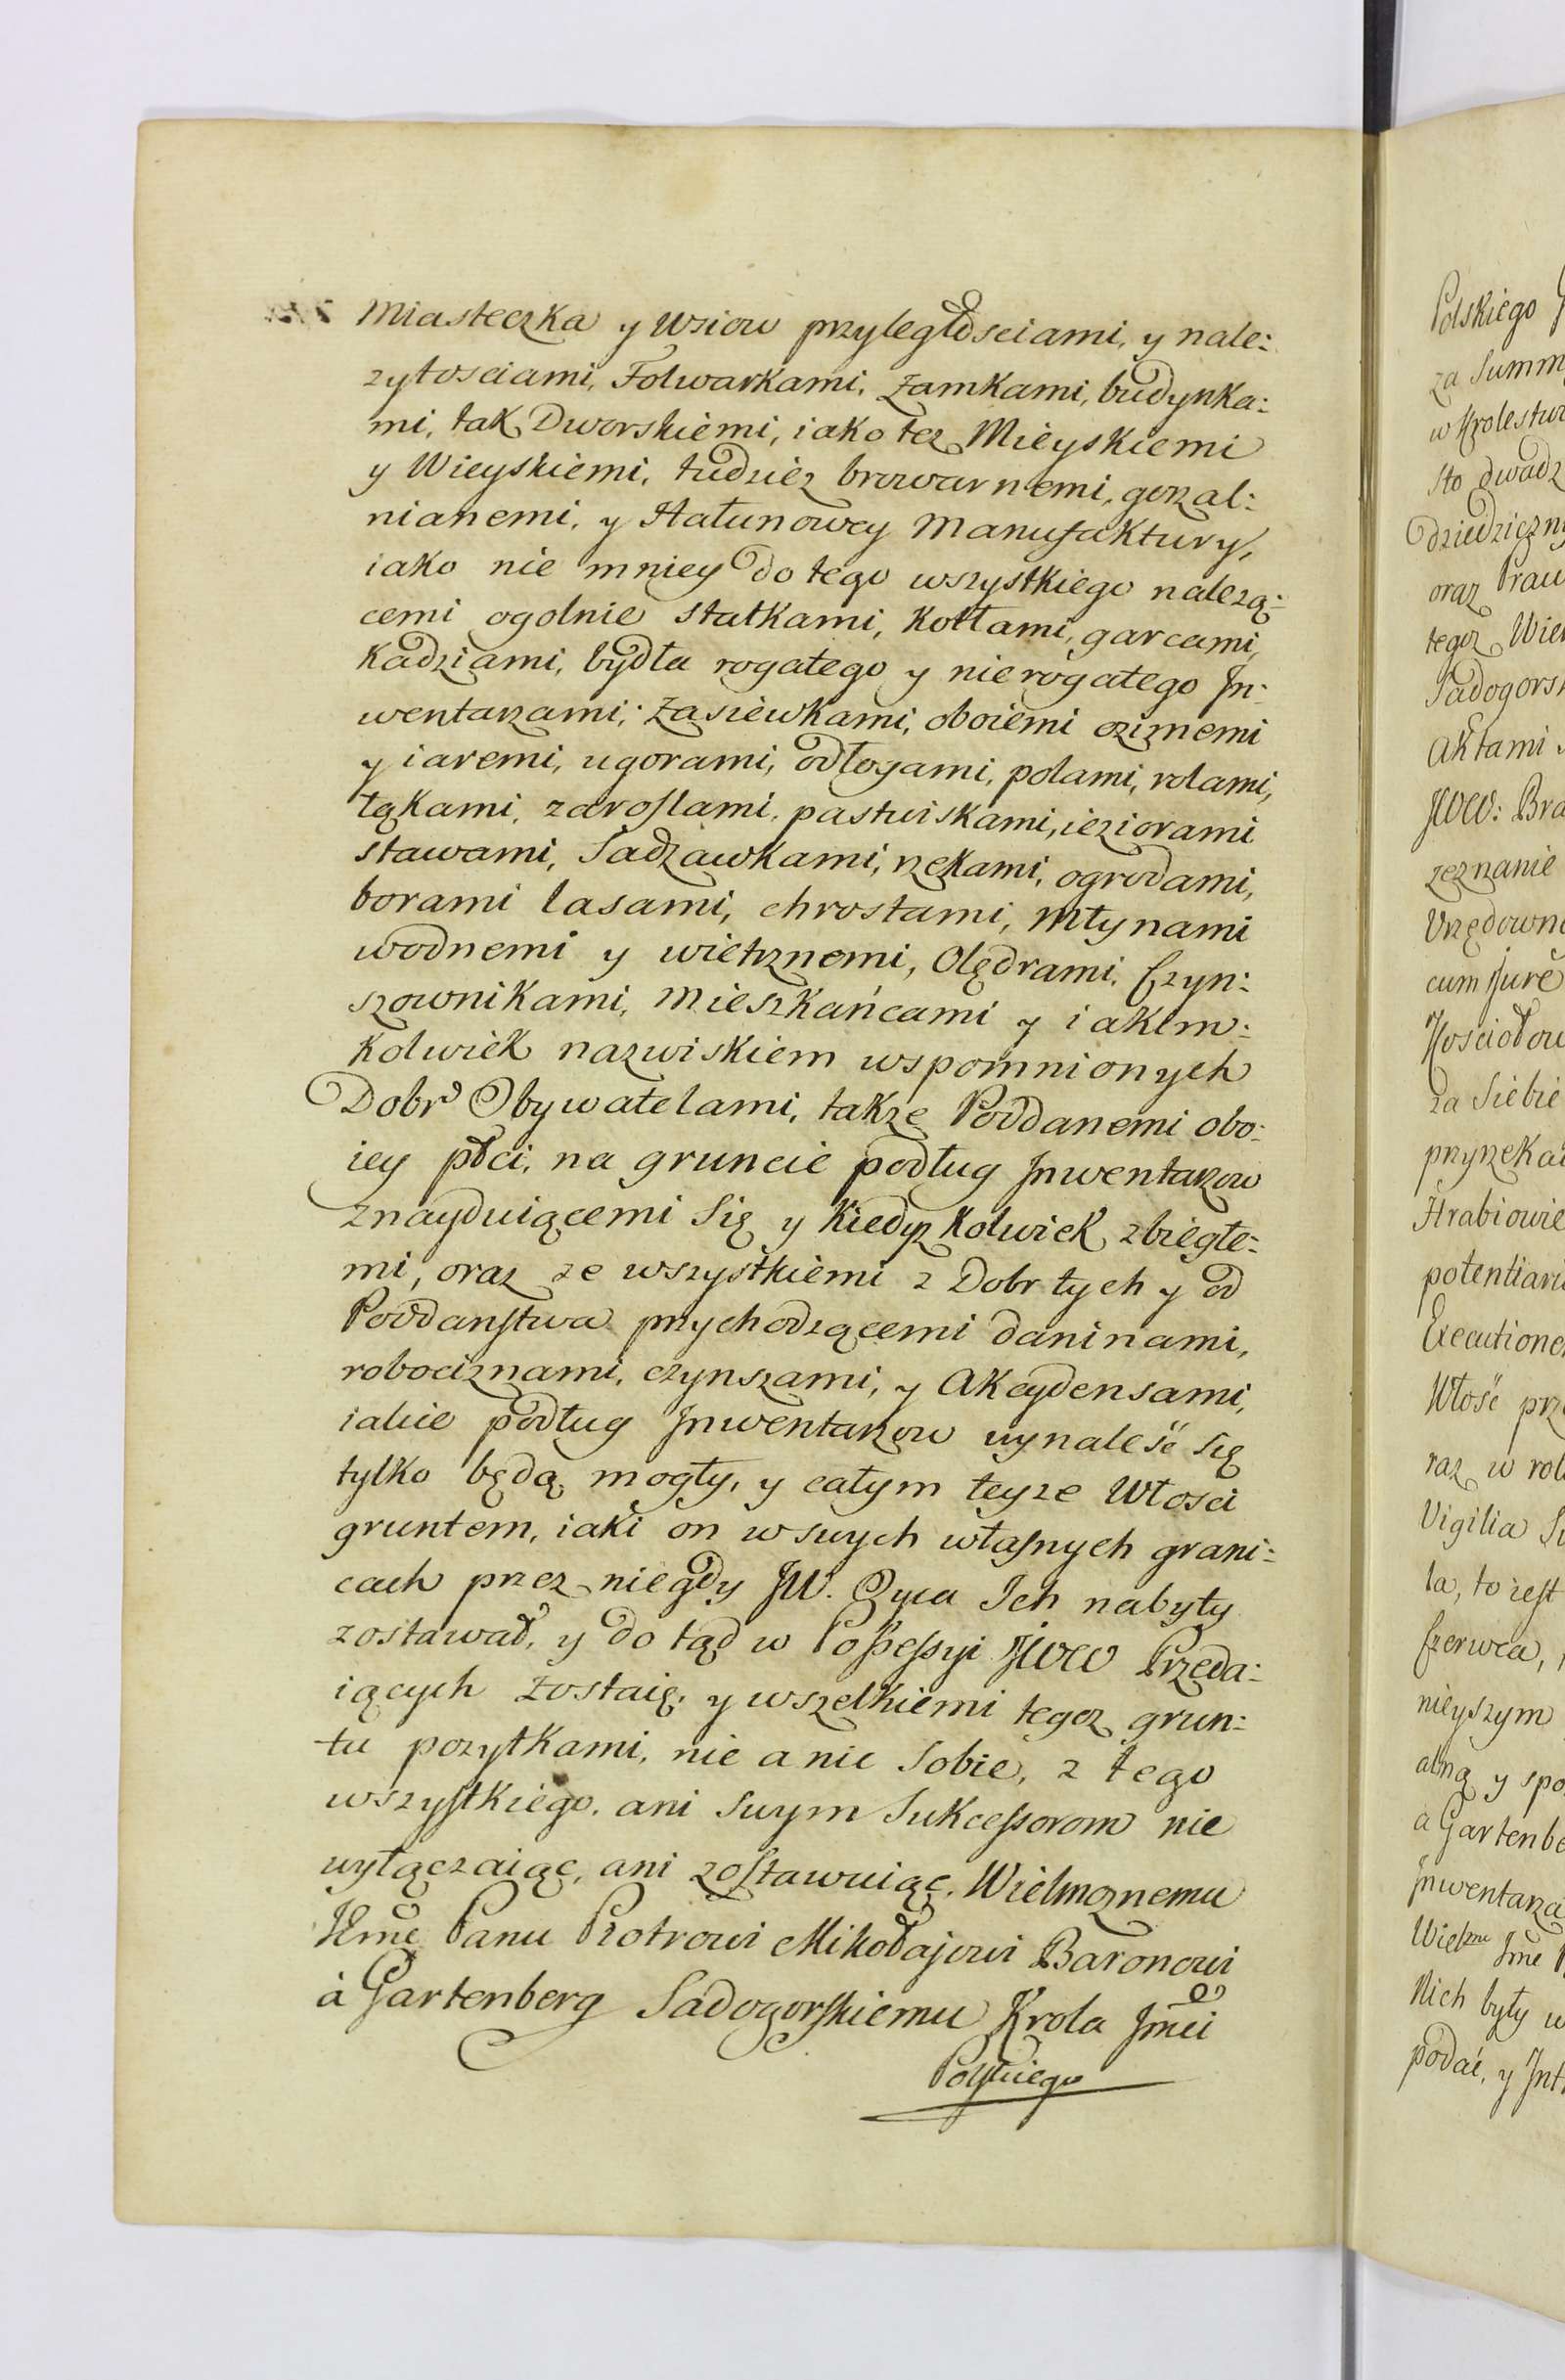 Miasteczka y Wsiow przyległościami, y nale:
zytosciami, Folwarkami, Zamkami, budynka:
mi, tak Dworskiemi, iako tez Mieyskiemi
y Wieyskiemi, tudziez browarnemi, gorzal:
nianemi, y Hałunowey Manufaktury,
iako nie mniey do tego wszystkiego nalezą:
cemi ogolnie statkami, Kotłami, garcami,
Kadziami, bydła rogatego y nierogatego In:
wentarzami, Zasiewkami, oboiemi ozimemi
y iaremi, ugorami, odłogami, polami, rolami,
łąkami, zaroslami, pastwiskami, ieziorami
stawami, Sadzawkami, rzekami, ogrodami,
borami lasami, chrostami, Młynami
wodnemi y wietrznemi, Olędrami, Czyn:
szownikami, Mieszkańcami y iakim:
kolwiek nazwiskiem wspomnionych
Dobr Obywatelami, takze Poddanemi obo:
iey płci, na gruncie podług Inwentarzow
znayduiącemi Się y Kiedyz Kolwiek zbiegłe:
mi, oraz ze wszystkiemi z Dobr tych y od
Poddanstwa przychodzącemi daninami,
robociznami, czynszami, y Akcydensami,
iakie podług Inwentarzow wynaleść się
tylko będą mogły, y całym teyze Włosci
gruntem, iaki on w swych własnych grani:
cach przez niegdy JW. Oyca Ich nabyty
zostawał, y do tąd w Possessyi JWW Przeda:
iących Zostaię, y wszelkiemi tegoz grun:
tu pozytkami, nic a nic Sobie, z tego
wszystkiego, ani Swym Sukcessorom nie
wyłączaiąc, ani zostawuiąc, Wielmoznemu
Jmc Panu Piotrowi Mikołajowi Baronowi
à Gartenberg Sadogorskiemu Krola Jmci
Polskiego
Polskiego
za Summ
w Krolestw
sto dwadz
dziedziczny
oraz Praw
tegoz Wie
Sadogors
Aktami
JWW: Bra
zeznanie
Urzędown
cum jure
Kosciołow
za Siebie
przyrzeka
Hrabiowie
potentiari
Executione
Włość prz
raz w rol
Vigilia
la, to iest
Czerwca,
nieyszym
alną y spo
a Gartenbe
Inwentarza
Wielmu Jme
Nich były w
podać, y Int